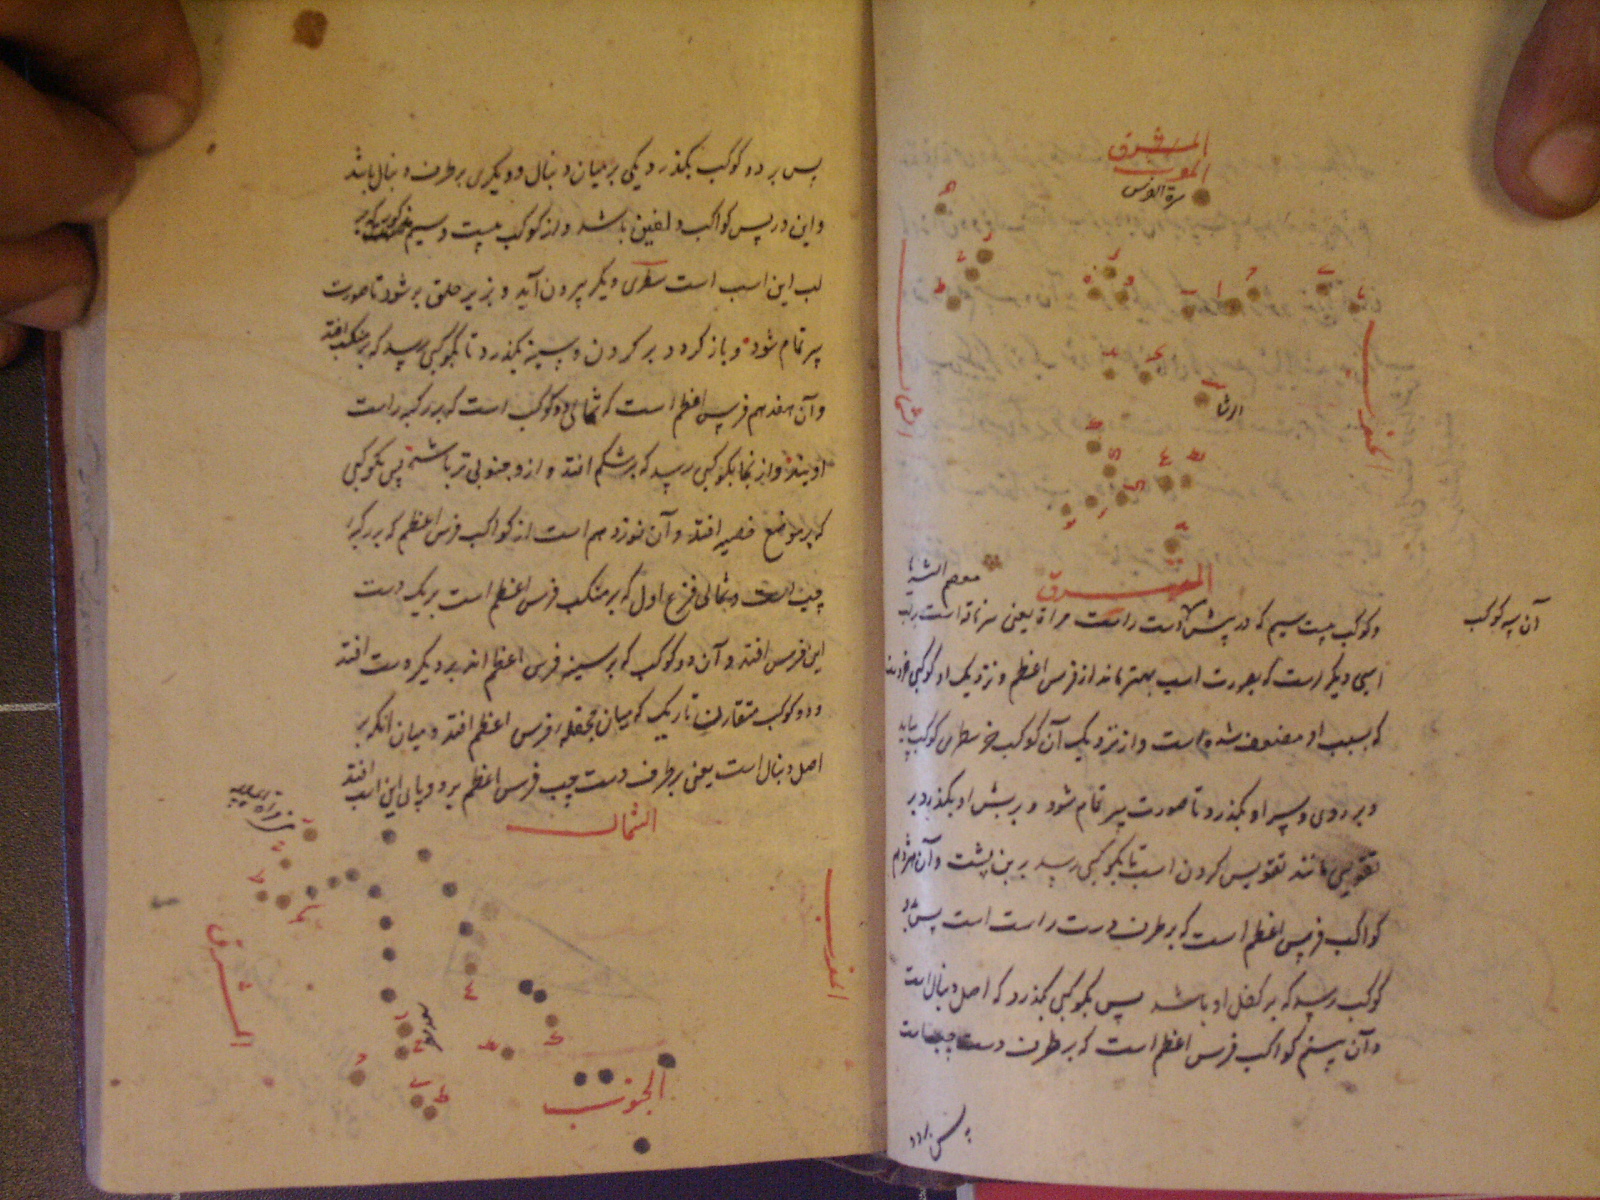 المشرق
سرة الفرس
الجنوب
الشمال
المشرق
و کوکب بیست سیم که در پیش دست راست مراة یعنی سر ناقه است
آن سه کوکب
اسبی دیگر است که بصورت اسب بهتر ماند از فرس اعظم و نزدیک او کوکبی
که بسبب او مضعوف شده است و از نزدیک آن کوکب خرد سطری کوکب بیاید
و بر روی و سر او بگذرد تا صورت سر تمام شود و بر بش او بگذرد بر
تقویسی مانند تقویس کردن اسب تا بکوکبی رسد بر بن پشت و آن هژدهم
کواکب فرس اعظم است که بر طرف دست راست است پس بدو
کوکب رسد که بر کفل او باشد پس بکوکبی بگذرد که اصل دنبال است
و آن بیستم کواکب فرس اعظم است که بر طرف دست چپ است
پس بر دو
پس بر دو کوکب بگذرد یکی بر میان دنبال و دیگری بر طرف دنبال باشد
و این در پس کواکب دلفین باشد و از کوکب بیست و سیم که بر
لب این اسب است سطری دیگر بیرون آید و بزیر حلق بر شود تا صورت
سر تمام شود و باز گردد بر گردن و سینه بگذرد تا بکوکبی رسد که بر منکب افتد
و آن هفدهم فرس اعظم است که شمالی دو کوکب است که بر رکبه راست
اویند و از آنجا بکوکبی رسد که بر شکم افتد و از و جنوبی تر باشد پس بکوکبی
که بر موضع خصیه افتد و آن نوزدهم است از کواکب فرس اعظم که بر رکبه
چپ است و شمالی فرغ اول که بر منکب فرس اعظم است بر یک دست
این فرس افتد و آن دو کوکب که بر سینه فرس اعظم اند بر دیگر دست افتد
و دو کوکب متقارن تاریک که میان جحفله فرس اعظم افتد و میان آنکه بر
اصل دنبال است یعنی بر طرف دست چپ فرس اعظم بر دو پای این اسب افتد
الشمال
المغرب
المشرق
الجنوب